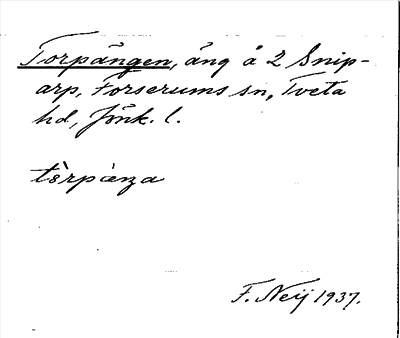 Torpängen, äng å 2 Snip-
arp, Forserums sn, Tveta
hd, Jönk. l.
tèrpæ̀ŋa
F. Neij 1937.